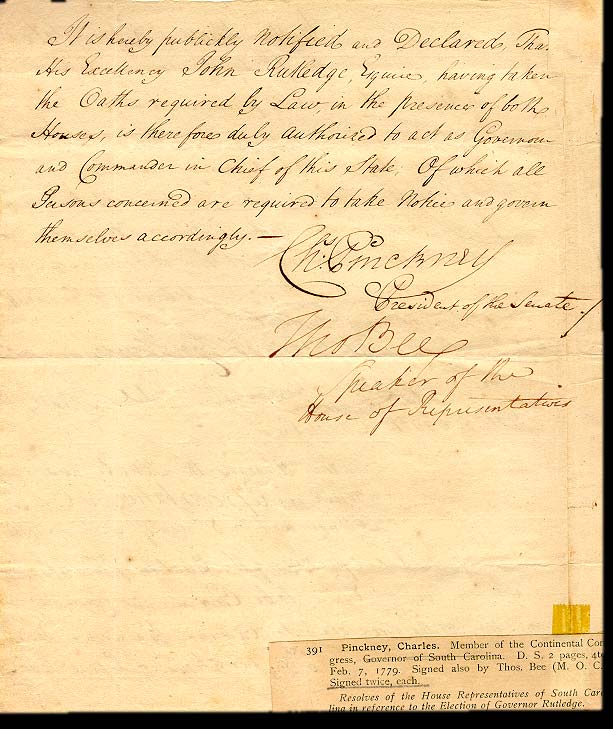 It is hereby publickly Notified and Declared, Tha
His Excellency John Rutledge, Esquire, having taken
the Oaths required by Law, in the presence of both
Houses, is therefore duly authorized to act as Governour
and Commander in Chief of this State; Of which all
Persons concerned are required to take Notice and govern
themselves accordingly. —
Chs. Pinckney
President of the Senate.
Tho Bee
Speaker of the
House of Representatives
391 Pinckney, Charles. Member of the Continental Con
gress, Governor of South Carolina. D. S. 2 pages, 4to
Feb. 7, 1779. Signed also by Thos. Bee (M. O. C.
Signed twice, each.
Resolves of the House Representatives of South Caro
lina in reference to the Election of Governor Rutledge.